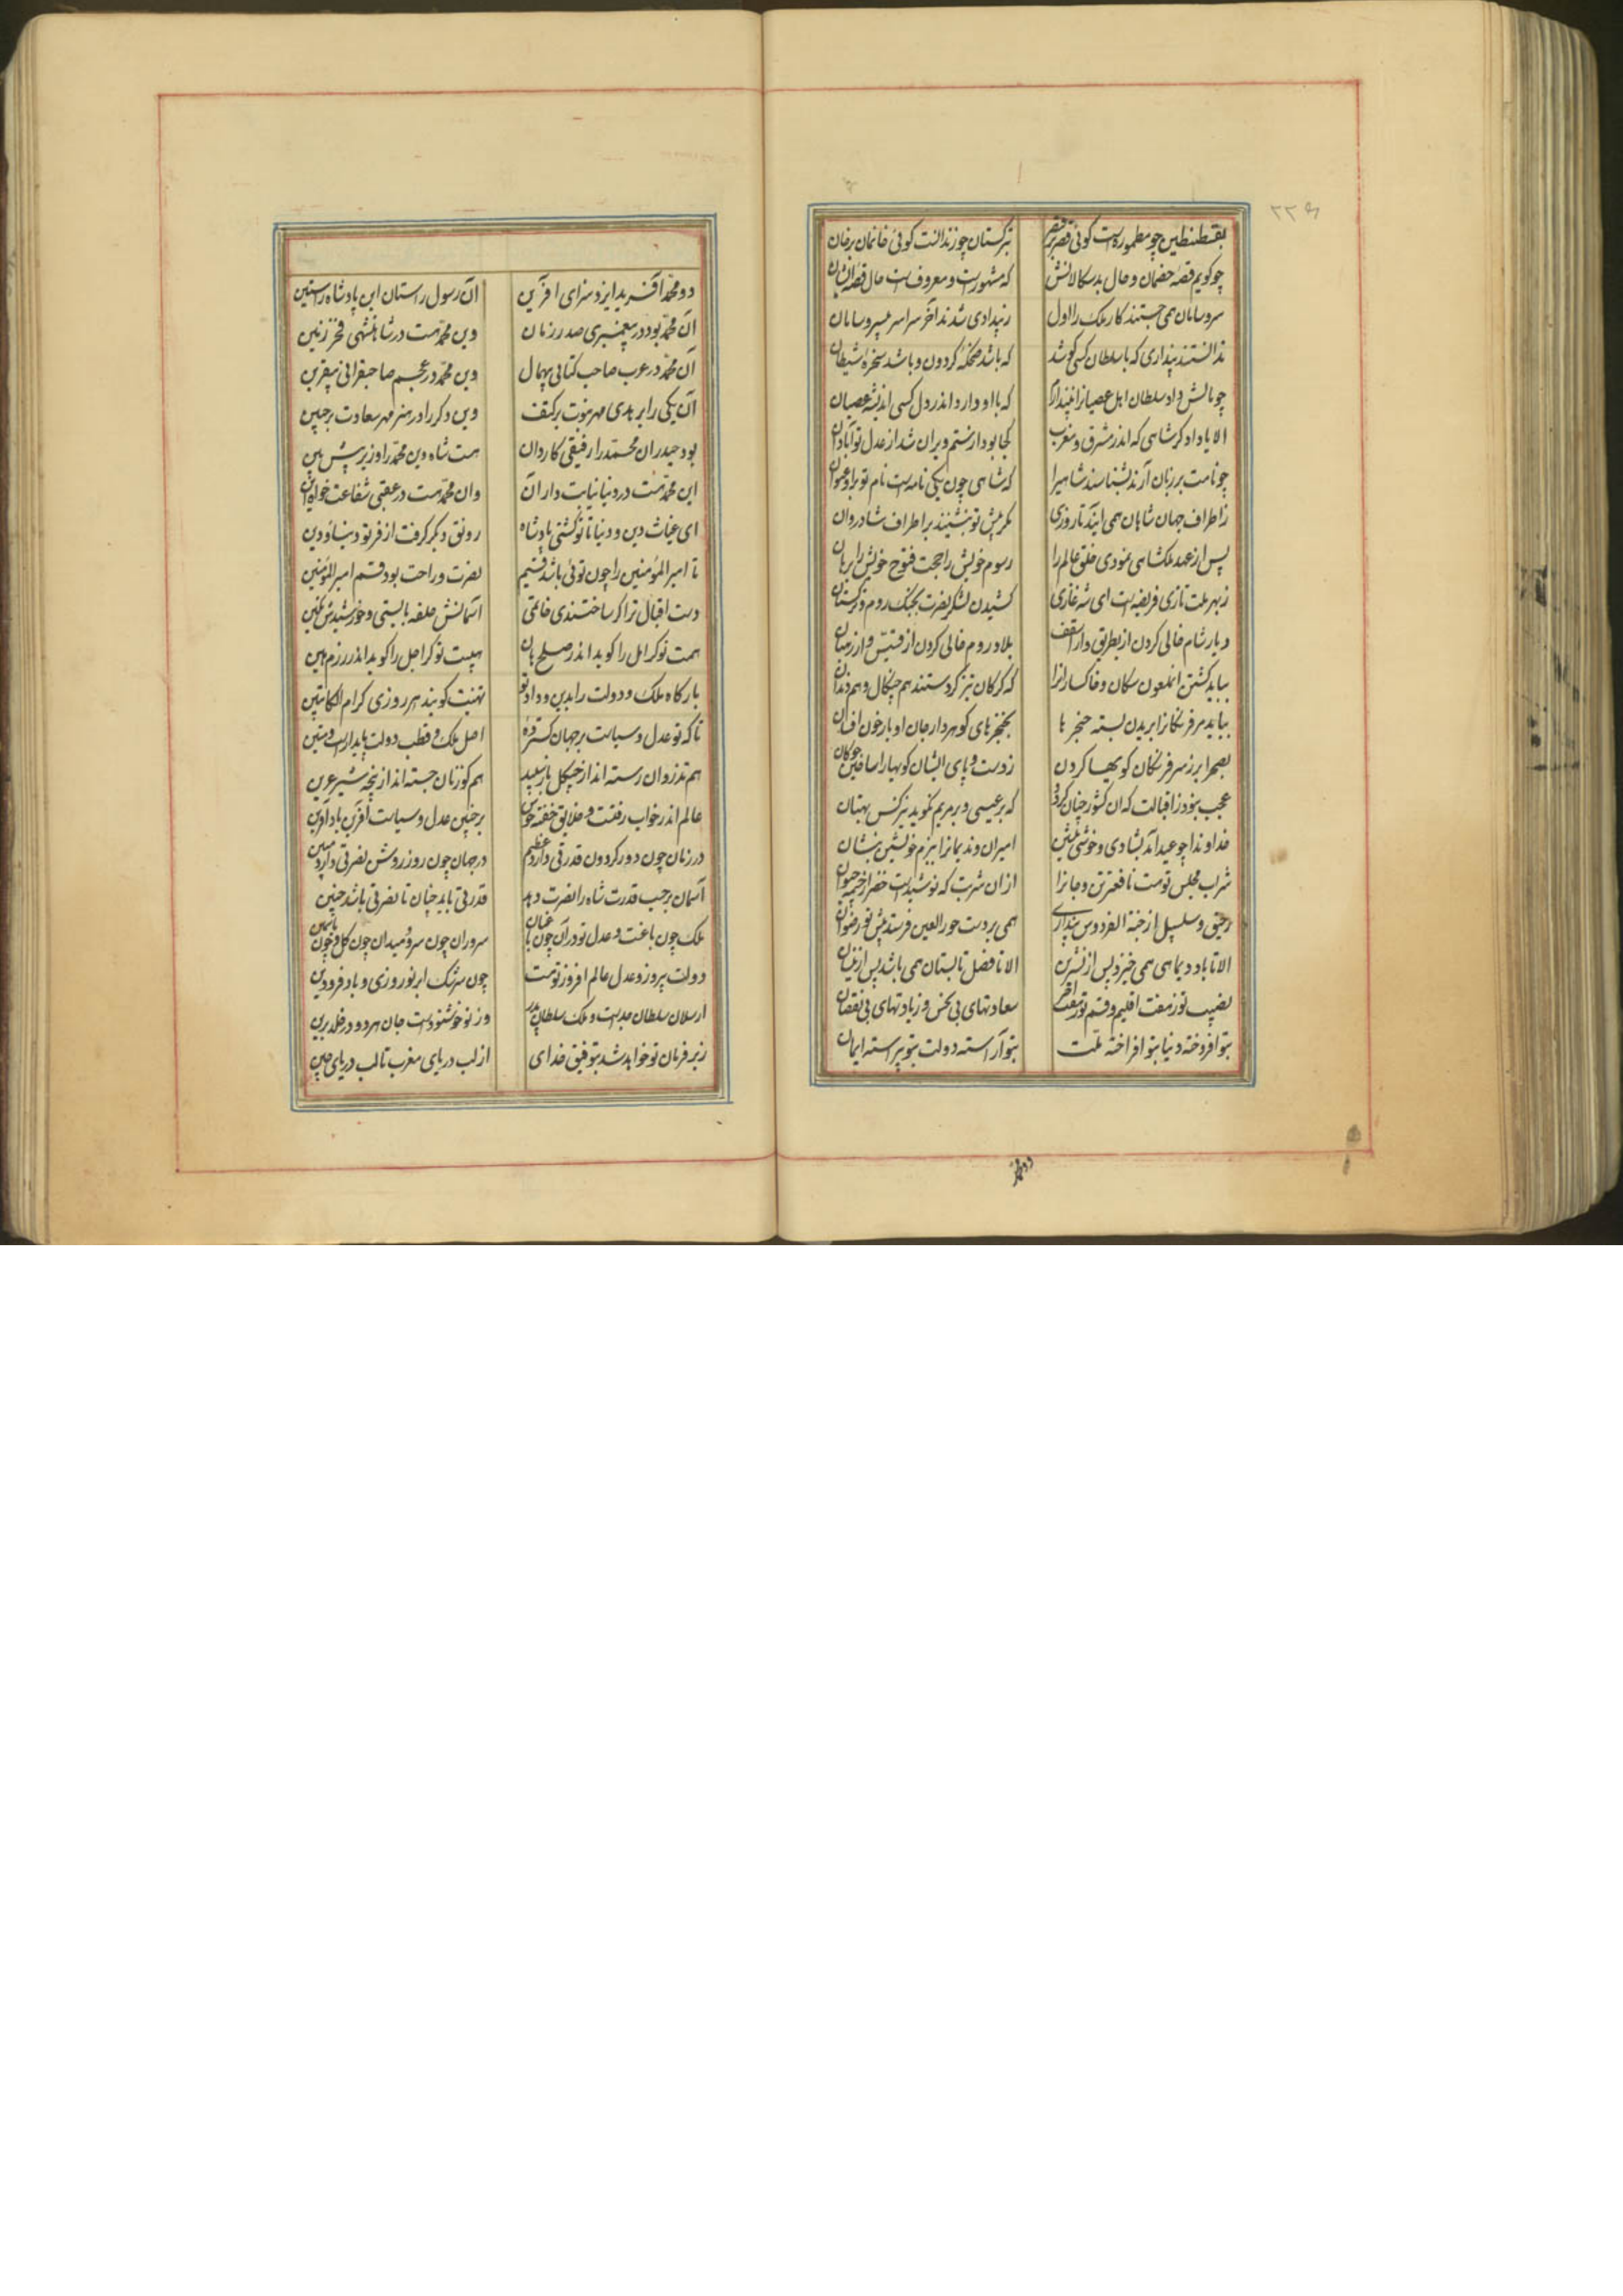 ۲۲۹
بقسطنطین چو مطموره است کوئی قصر بر قیصر بترکستان چو زندانست کوئی خانمان بر خان
چو کویم قصهٔ خصمان و حال بد سکالانش که مشهور است و معروف است حال و قصهٔ ایشان
سر و سامان همی جستند کار ملک را اول ز بیدادی شدند آخر سراسر بی سر و سامان
ندانستند پنداری که با سلطان کسی کوشد که باشد ضحکهٔ کردون و باشد سخرهٔ شیطان
چو مالش داد سلطان اهل عصیانرا نپندارم که با او دارد اندر دل کسی اندیشهٔ عصیان
الا یا دادکر شاهی که اندر مشرق و مغرب کجا بود از ستم ویران شد از عدل تو آبادان
چو نامت بر زبان آرند بشناسند شاهیرا که شاهی چون یکی نامه است نام تو برو عنوان
ز اطراف جهان شاهان همی آیند تا روزی مکر پیش تو بنشینند بر اطراف شادروان
پس از عهد ملکشاهی نمودی خلق عالم را رسوم خویش را حجت فتوح خویش را برهان
ز بهر ملت تازی فریضه است ای شه غازی کشیدن لشکر نصرت بجنک روم و ترکستان
دیار شام خالی کردن از بطریق و از اسقف بلاد روم خالی کردن از قسیس و از رهبان
بباید کشتن آن ملعون سکان و خاکسارانرا که کرکان تیز کردستند هم چنکال و هم دندان
بباید مر فرنکانرا بریدن بسته حنجر ها بخنجرهای کوهردار جان اوبار خون افشان
بصحرا بر ز سر فرنکان کویها کردن ز دست و پای ایشان کویها را ساختن چوکان
عجب نبود ز اقبالت که آن کشور چنان کردد که بر عیسی و بر مریم نکوید نیز کس بهتان
خداوندا چو عید آمد بشادی و خوشی بنشین امیران و ندیمانرا ببزم خویشتن بنشان
شراب مجلس تو هست نافعتر تن و جانرا از ان شربت که نوشیده است خضر از چشمهٔ حیوان
رحیق و سلسبیل از جنة الفردوس پنداری همی بر دست حور العین فرستد پیش تو رضوان
الا تا باد دیماهی همی خیزد پس از تشرین الا تا فصل تابستان همی باشد پس از نیسان
نصیب تو ز هفت اقلیم و قسم تو ز هفت اختر سعادتهای بی نحس و زیادتهای بی نقصان
بتو افروخته دنیا بتو افراخته ملت بتو آراسته دولت بتو پیراسته ایمان
دو محمد
دو محمد آفرید ایزد سزای آفرین آن رسول راستان این پادشاه راستین
آن محمد بود در پیغمبری صدر زمان وین محمد هست در شاهنشهی فخر زمین
آن محمد در عرب صاحب کتابی بیهمال وین محمد در عجم صاحبقرانی بیقرین
آن یکی را بر هدی مهر نبوت بر کتف وین دکر را در هنر مهر سعادت بر جبین
بود حیدر آن محمد را رفیقی کاردان هست شاه دین محمد را وزیر پیش بین
این محمد هست در دنیا نیابت دار آن وان محمد هست در عقبی شفاعت خواه این
ای غیاث دین و دنیا تا تو کشتی پادشاه رونق دیکر کرفت از فر تو دنیا و دین
تا امیر المؤمنین را چون توئی باشد قسیم نصرت و راحت بود قسم امیر المؤمنین
دست اقبال ترا کر ساختندی خاتمی آسمانش حلقه بایستی و خورشیدش نکین
همت تو کر امل را کوید اندر صلح هان هیبت تو کر اجل را کوید اندر رزم هین
بارکاه ملک و دولت را بدین و داد تو تهنیت کویند هر روزی کرام الکاتبین
تا که تو عدل و سیاست بر جهان کستردهٔ اصل ملک و قطب دولت پایدار است و متین
هم تذروان رسته اند از چنکل باز سپید هم کوزنان جسته اند از پنجهٔ شیر عرین
عالم اندر خواب رفتست و خلایق خفته خوش بر چنین عدل و سیاست آفرین باد آفرین
در زمان چون دور کردون قدرتی دارد عظیم در جهان چون روز روشن نصرتی دارد مبین
آسمان بر حسب قدرت شاه را نصرت دهد قدرتی باید چنان تا نصرتی باشد چنین
ملک چون باغست و عدل تو در آن چون باغبان سروران چون سرو و میدان چون کل و چون یاسمین
دولت پیروز و عدل عالم افروز تو هست چون سرشک ابر نوروزی و باد فرودین
ارسلان سلطان جد است و ملک سلطان پدر وز تو خوشنود است جان هر دو در خلد برین
زیر فرمان تو خواهد شد بتوفیق خدای از لب دریای مغرب تا لب دریای چین